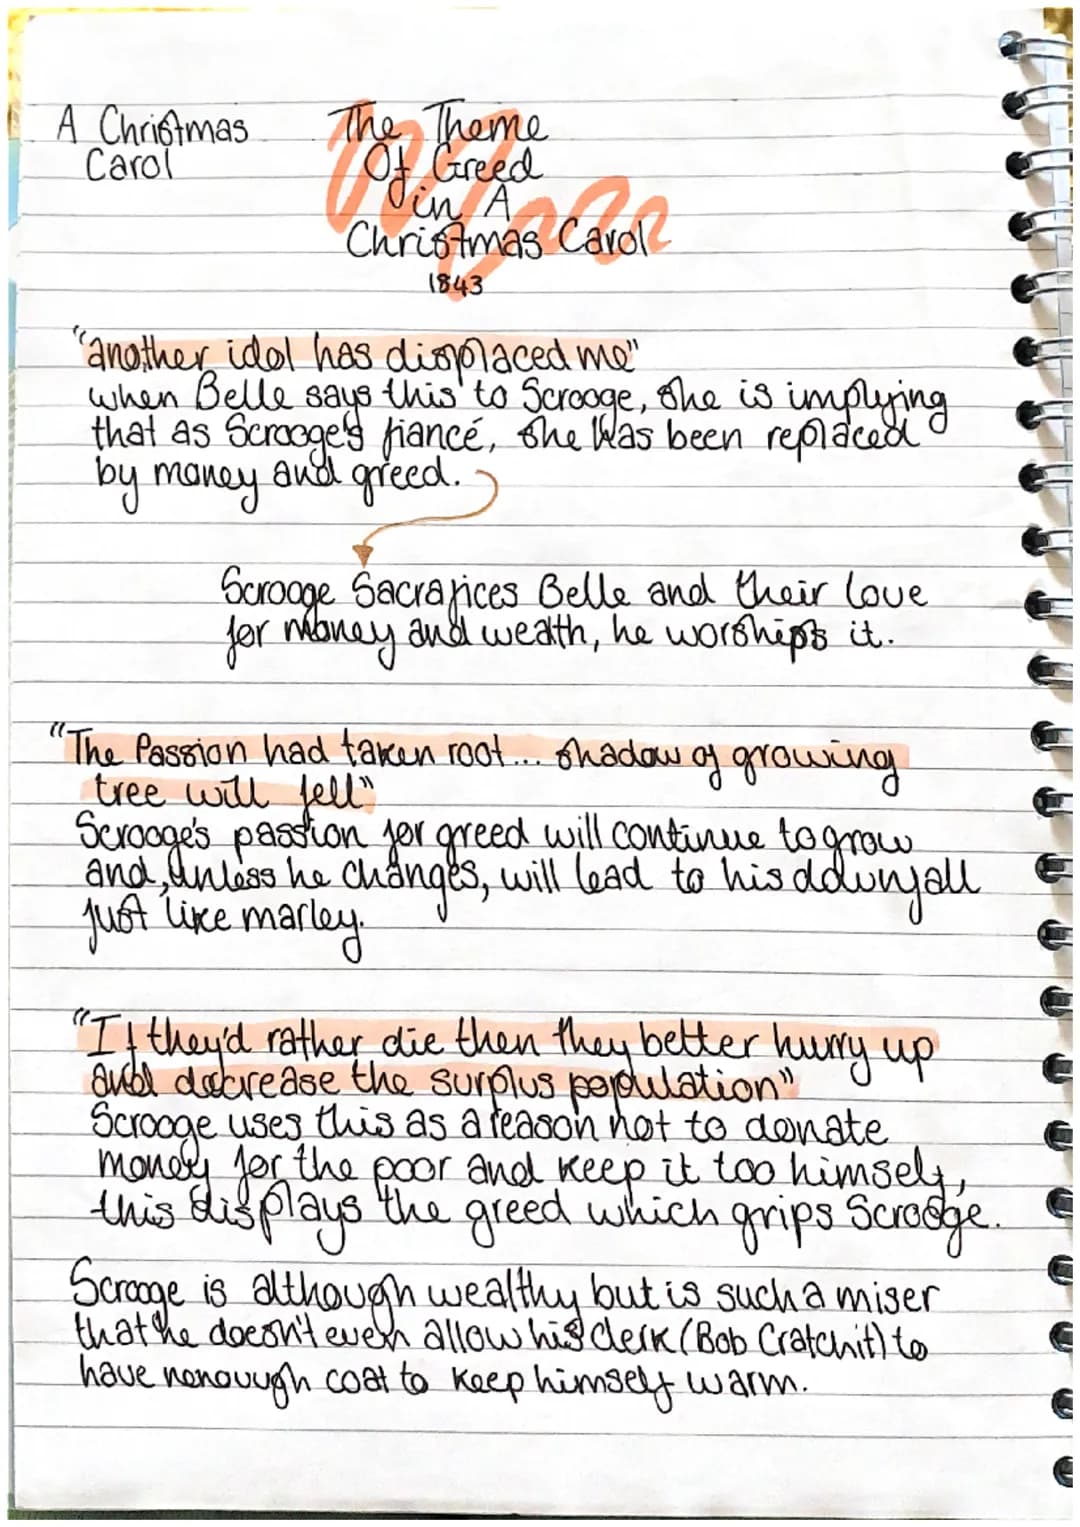 A Christmas
Carol
The Theme
Of Greed
in A
Christmas Carol
1843
"another idol has displaced me"
when Belle says this to Scrooge, she is implying
that as Scrooge's fiancé, she has been replaced
by money and greed.
Scrooge Sacrafices Belle and their love
for money and wealth, he worships it.
"The Passion had taken root... shadow of growing
tree will fell"
Scrooge's passion for greed will continue to grow
and, unless he changes, will lead to his downfall
just like marley.
"If they'd rather die then they better hurry up
and decrease the surplus population"
Scrooge uses this as a reason not to donate
money for the poor and keep it too himself,
this displays the greed which grips Scrooge.
Scrooge is although wealthy but is such a miser
that he doesn't even allow his clerk (Bob Cratchit) to
have nenouugh coat to keep himself warm.